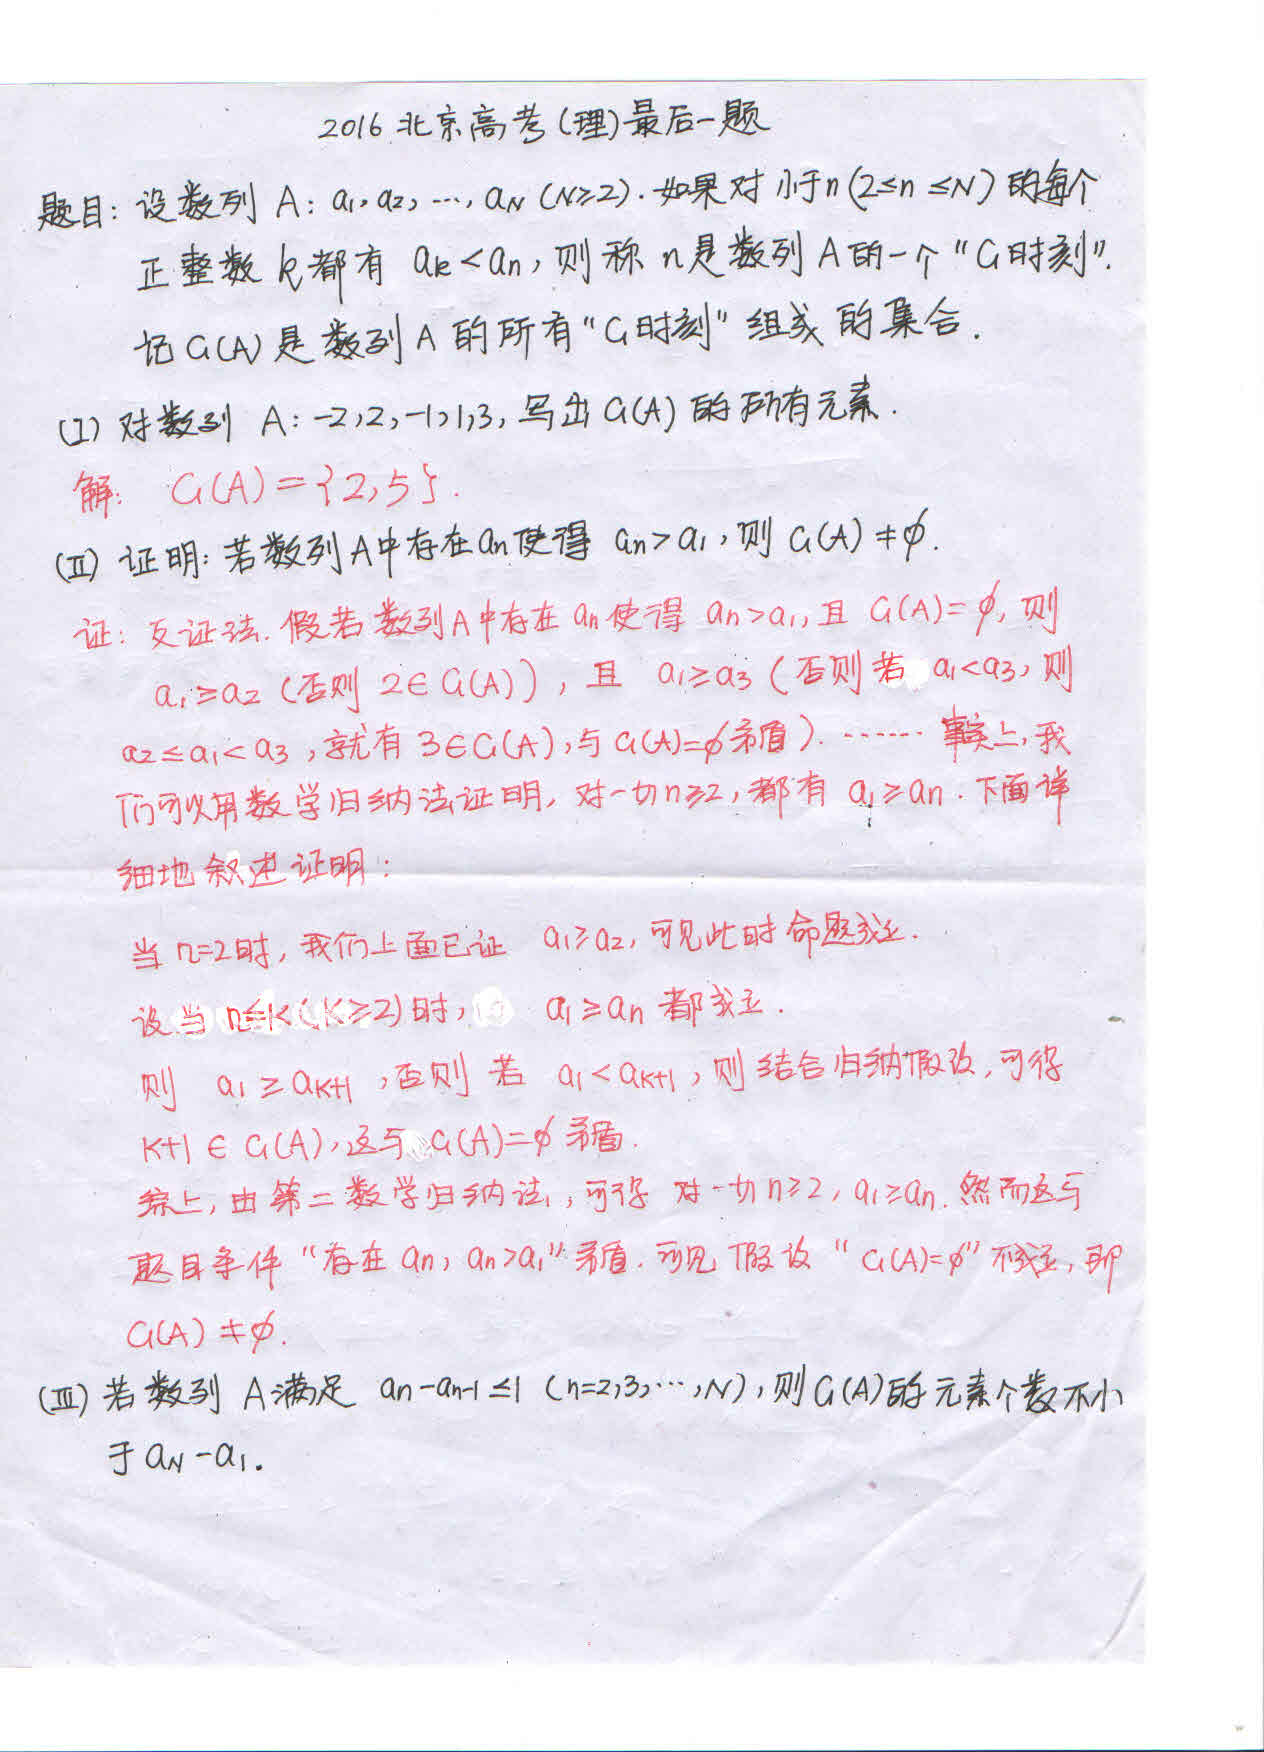 2016北京高考(理)最后一题
题目: 设数列 A: a₁, a₂, …, a_N (N≥2). 如果对小于n(2≤n≤N)的每个
正整数k都有 a_k<a_n, 则称n是数列A的一个“G时刻”.
记G(A)是数列A的所有“G时刻”组成的集合.
(I) 对数列 A: -2,2,-1,1,3, 写出G(A)的所有元素.
解: G(A)={2,5}.
(II) 证明: 若数列A中存在a_n使得 a_n>a₁, 则G(A)≠∅.
证: 反证法. 假若数列A中存在a_n使得 a_n>a₁, 且 G(A)=∅, 则
a₁≥a₂ (否则 2∈G(A)), 且 a₁≥a₃ (否则若 a₁<a₃, 则
a₂≤a₁<a₃, 就有3∈G(A), 与G(A)=∅矛盾). …… 事实上, 我
们可以用数学归纳法证明, 对一切n≥2, 都有 a₁≥a_n. 下面详
细地叙述证明:
当n=2时, 我们上面已证 a₁≥a₂, 可见此时命题成立.
设当n≤K(K≥2)时, a₁≥a_n 都成立.
则 a₁≥a_{K+1}, 否则若 a₁<a_{K+1}, 则结合归纳假设, 可得
K+1∈G(A), 这与G(A)=∅矛盾.
综上, 由第二数学归纳法, 可得 对一切n≥2, a₁≥a_n. 然而这与
题目条件“存在a_n, a_n>a₁”矛盾. 可见假设“G(A)=∅”不成立, 即
G(A)≠∅.
(III) 若数列A满足 a_n-a_{n-1}≤1 (n=2,3,…,N), 则G(A)的元素个数不小
于a_N-a₁.